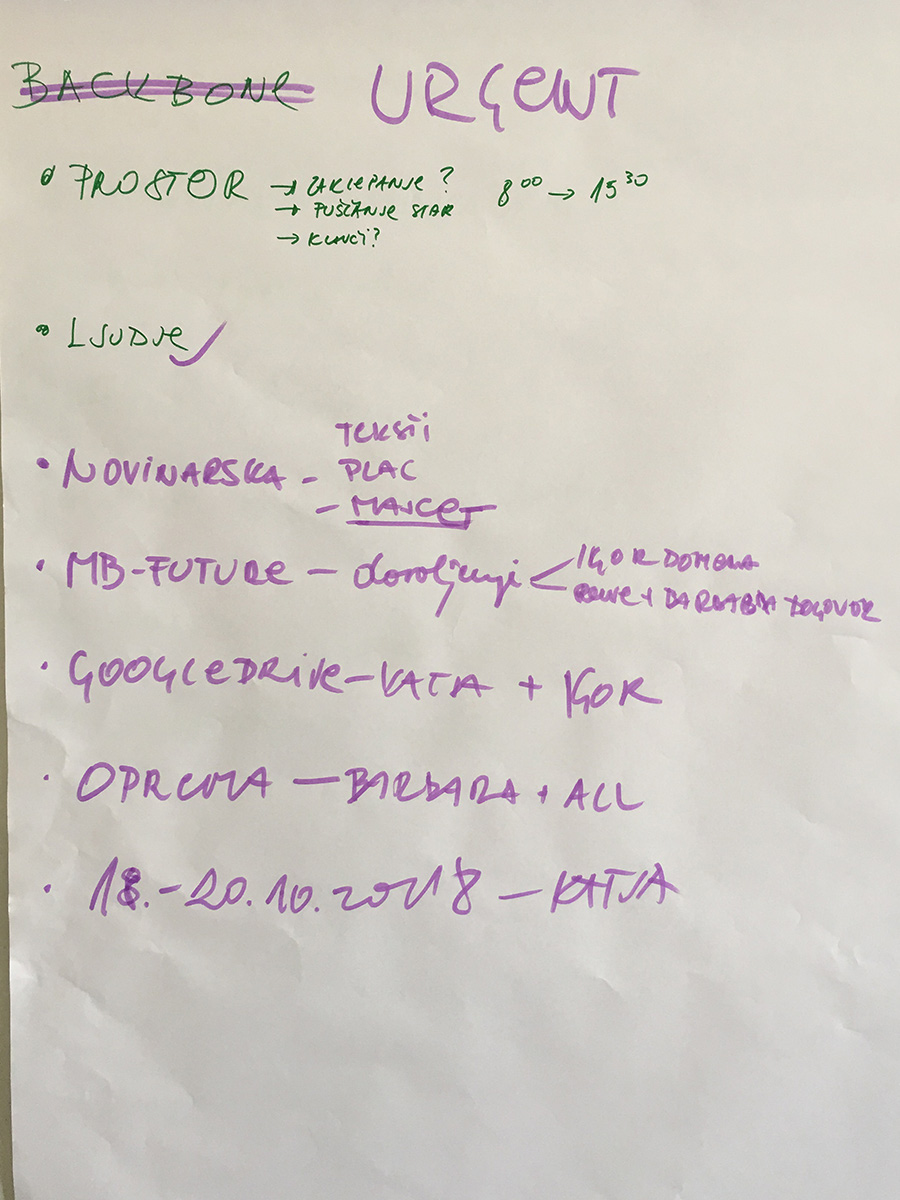 BACKBONE URGENT
• PROSTOR → ZAKLEPANJE ? 8⁰⁰ → 15³⁰
→ PUŠČANJE STAR
→ KLJUČI?
• LJUDJE ✓
TEKSTI
• NOVINARSKA - PLAC
- MAJCET
• MB-FUTURE - dovoljenji < IGOR DOMOVA
+ DOGOVOR
• GOOGLEDRIVE - KATA + IGOR
• OPREMA - BARBARA + ALL
• 18.-20.10.2018 - KATJA